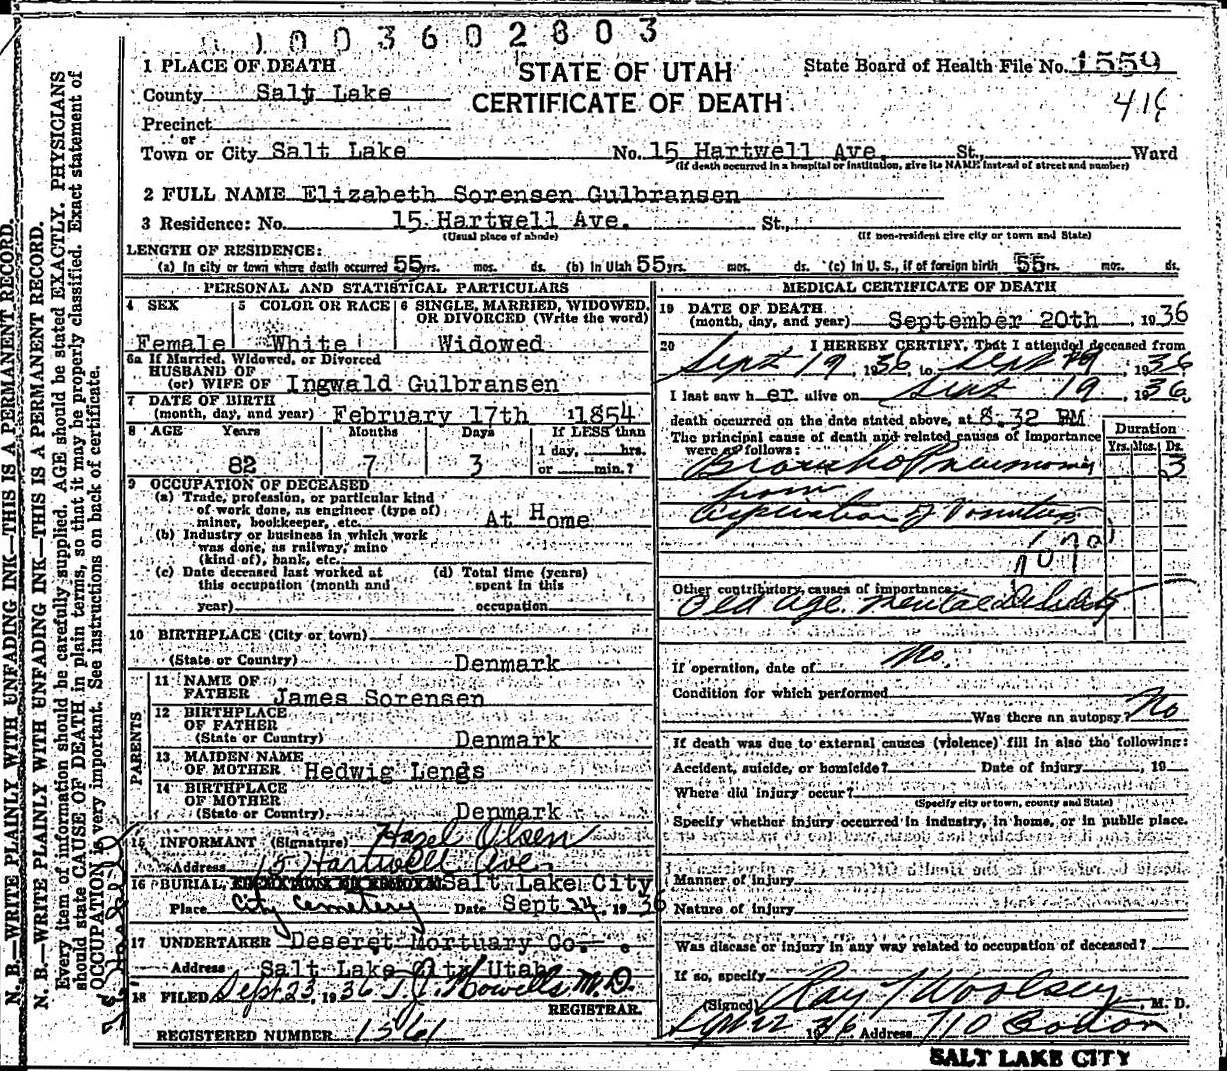 0 1 0 0 3 6 0 2 8 0 3
1 PLACE OF DEATH
STATE OF UTAH
State Board of Health File No. 1559
County Salt Lake
CERTIFICATE OF DEATH
Precinct
or
Town or City Salt Lake No. 15 Hartwell Ave. St., Ward
(If death occurred in a hospital or institution, give its NAME instead of street and number)
2 FULL NAME Elizabeth Sorensen Gulbransen
3 Residence: No. 15 Hartwell Ave. St.,
(Usual place of abode) (If non-resident give city or town and State)
LENGTH OF RESIDENCE:
(a) In city or town where death occurred 55 yrs. mos. ds. (b) in Utah 55 yrs. mos. ds. (c) In U. S., if of foreign birth 55 yrs. mos. ds.
PERSONAL AND STATISTICAL PARTICULARS
4 SEX 5 COLOR OR RACE 6 SINGLE, MARRIED, WIDOWED, OR DIVORCED (Write the word)
Female White Widowed
6a If Married, Widowed, or Divorced
HUSBAND OF
(or) WIFE OF Ingwald Gulbransen
7 DATE OF BIRTH
(month, day, and year) February 17th 1854
8 AGE Years Months Days If LESS than
1 day, hrs.
82 7 3 or min.?
9 OCCUPATION OF DECEASED
(a) Trade, profession, or particular kind
of work done, as engineer (type of)
miner, bookkeeper, etc. At Home
(b) Industry or business in which work
was done, as railway, mine
(kind of), bank, etc.
(c) Date deceased last worked at (d) Total time (years)
this occupation (month and spent in this
year) occupation
10 BIRTHPLACE (City or town)
(State or Country) Denmark
PARENTS
11 NAME OF
FATHER James Sorensen
12 BIRTHPLACE
OF FATHER
(State or Country) Denmark
13 MAIDEN NAME
OF MOTHER Hedwig Lengs
14 BIRTHPLACE
OF MOTHER
(State or Country) Denmark
15 INFORMANT (Signature) Hazel Olsen
Address 15 Hartwell Ave
16 BURIAL, CREMATION OR REMOVAL Salt Lake City
Place City Cemetery Date Sept 24, 1936
17 UNDERTAKER Deseret Mortuary Co.
Address Salt Lake City Utah
18 FILED Sept 23, 1936 T.J. Howells M.D.
REGISTRAR.
REGISTERED NUMBER 1561
MEDICAL CERTIFICATE OF DEATH
19 DATE OF DEATH
(month, day, and year) September 20th, 1936
20 I HEREBY CERTIFY, That I attended deceased from
Sept 19 1936 to Sept 19 1936
I last saw h er alive on Sept 19, 1936.
death occurred on the date stated above, at 8:32 PM
The principal cause of death and related causes of importance
were as follows:
Duration
Yrs. Mos. Ds.
Broncho Pneumonia 3
from
Aspiration of Vomitus
107a
Other contributory causes of importance:
Old age. Mental debility
If operation, date of No.
Condition for which performed
Was there an autopsy? No
If death was due to external causes (violence) fill in also the following:
Accident, suicide, or homicide? Date of injury , 19
Where did injury occur?
(Specify city or town, county and State)
Specify whether injury occurred in industry, in home, or in public place.
Manner of injury
Nature of injury
Was disease or injury in any way related to occupation of deceased?
If so, specify
(Signed) Ray T Woolsey, M. D.
Sept 22 1936 Address 710 Boston
SALT LAKE CITY
N. B.—WRITE PLAINLY WITH UNFADING INK—THIS IS A PERMANENT RECORD.
N. B.—WRITE PLAINLY WITH UNFADING INK—THIS IS A PERMANENT RECORD.
Every item of information should be carefully supplied. AGE should be stated EXACTLY. PHYSICIANS
should state CAUSE OF DEATH in plain terms, so that it may be properly classified. Exact statement of
OCCUPATION is very important. See instructions on back of certificate.